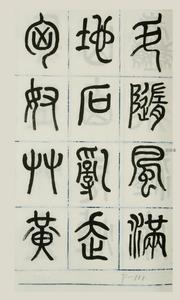 斗隨風滿
地石亂走
匈奴艸黃